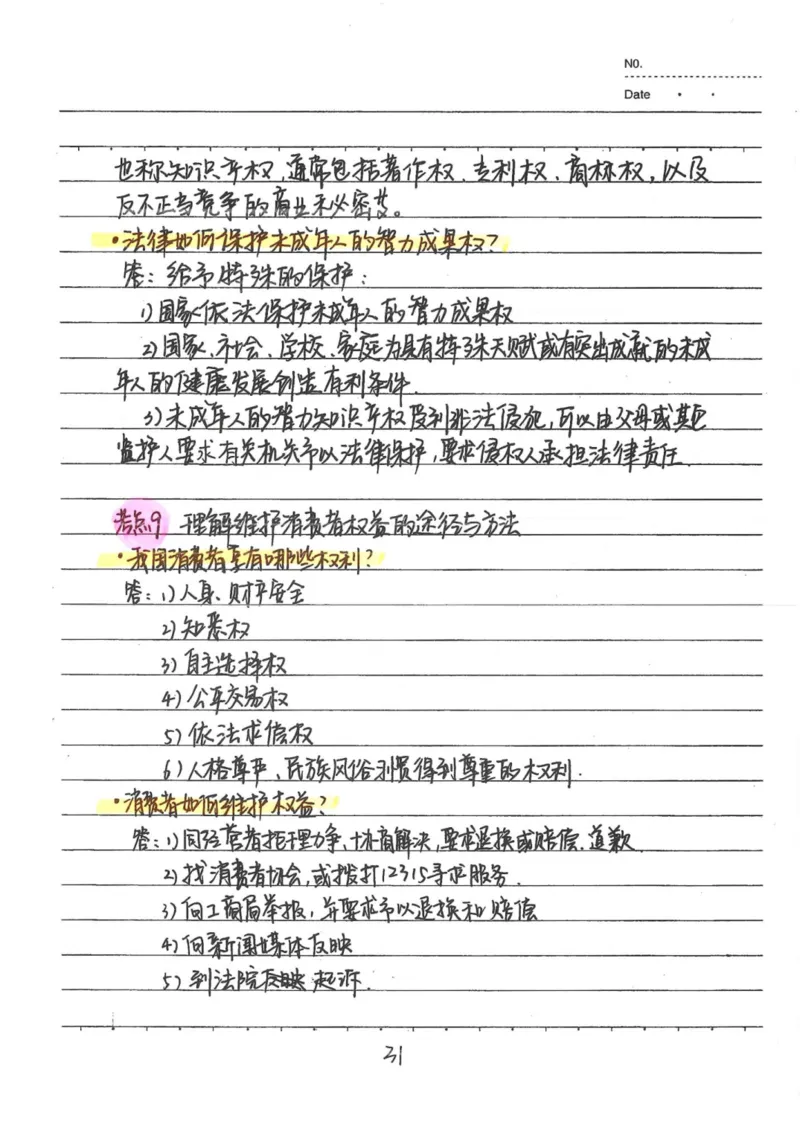 NO.
Date
也称知识产权,通常包括著作权、专利权、商标权,以及
反不正当竞争的商业秘密等。
·法律如何保护未成年人的智力成果权?
答:给予特殊的保护:
1)国家依法保护未成年人的智力成果权
2)国家、社会、学校、家庭为具有特殊天赋或有突出成就的未成
年人的健康发展创造有利条件.
3)未成年人的智力知识产权受到非法侵犯,可以由父母或其他
监护人要求有关机关予以法律保护,要求侵权人承担法律责任.
考点9 理解维护消费者权益的途径与方法
·我国消费者享有哪些权利?
答:1)人身、财产安全
2)知悉权
3)自主选择权
4)公平交易权
5)依法求偿权
6)人格尊严、民族风俗习惯得到尊重的权利.
·消费者如何维护权益?
答:1)同经营者据理力争,协商解决,要求退换或赔偿、道歉.
2)找消费者协会,或拨打12315寻求服务.
3)向工商局举报,并要求予以退换和赔偿
4)向新闻媒体反映
5)到法院起诉.
31